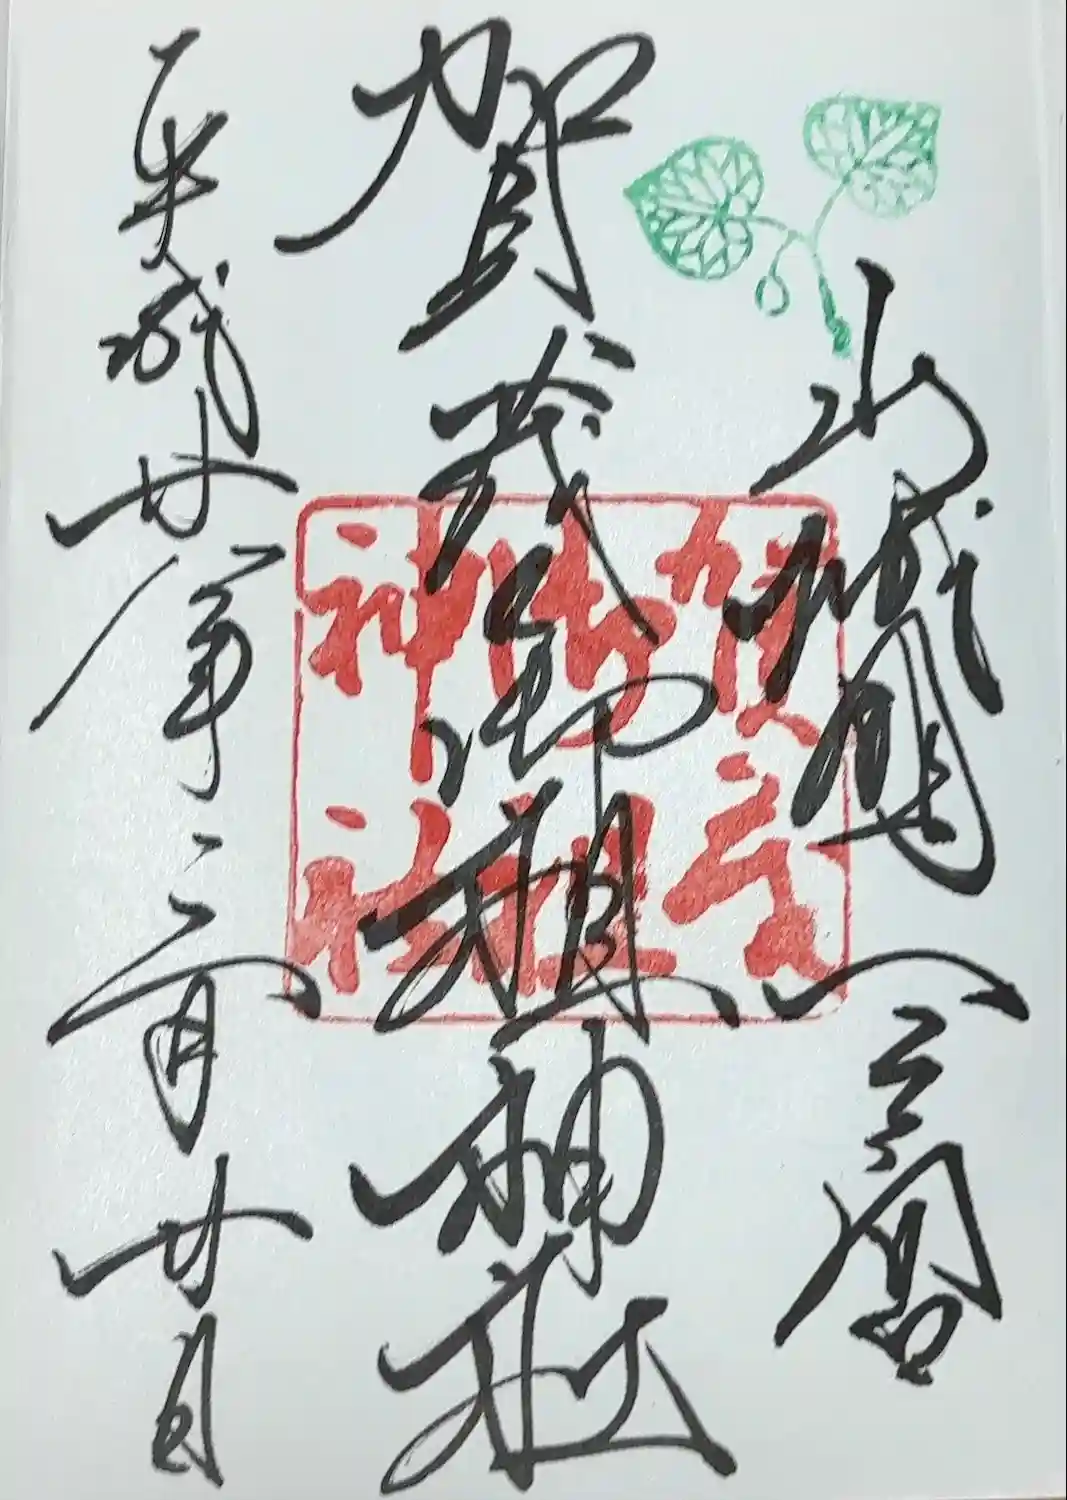 山城國一宮
賀茂御祖神社
平成廿八年三月廿日
賀茂
御祖
神社